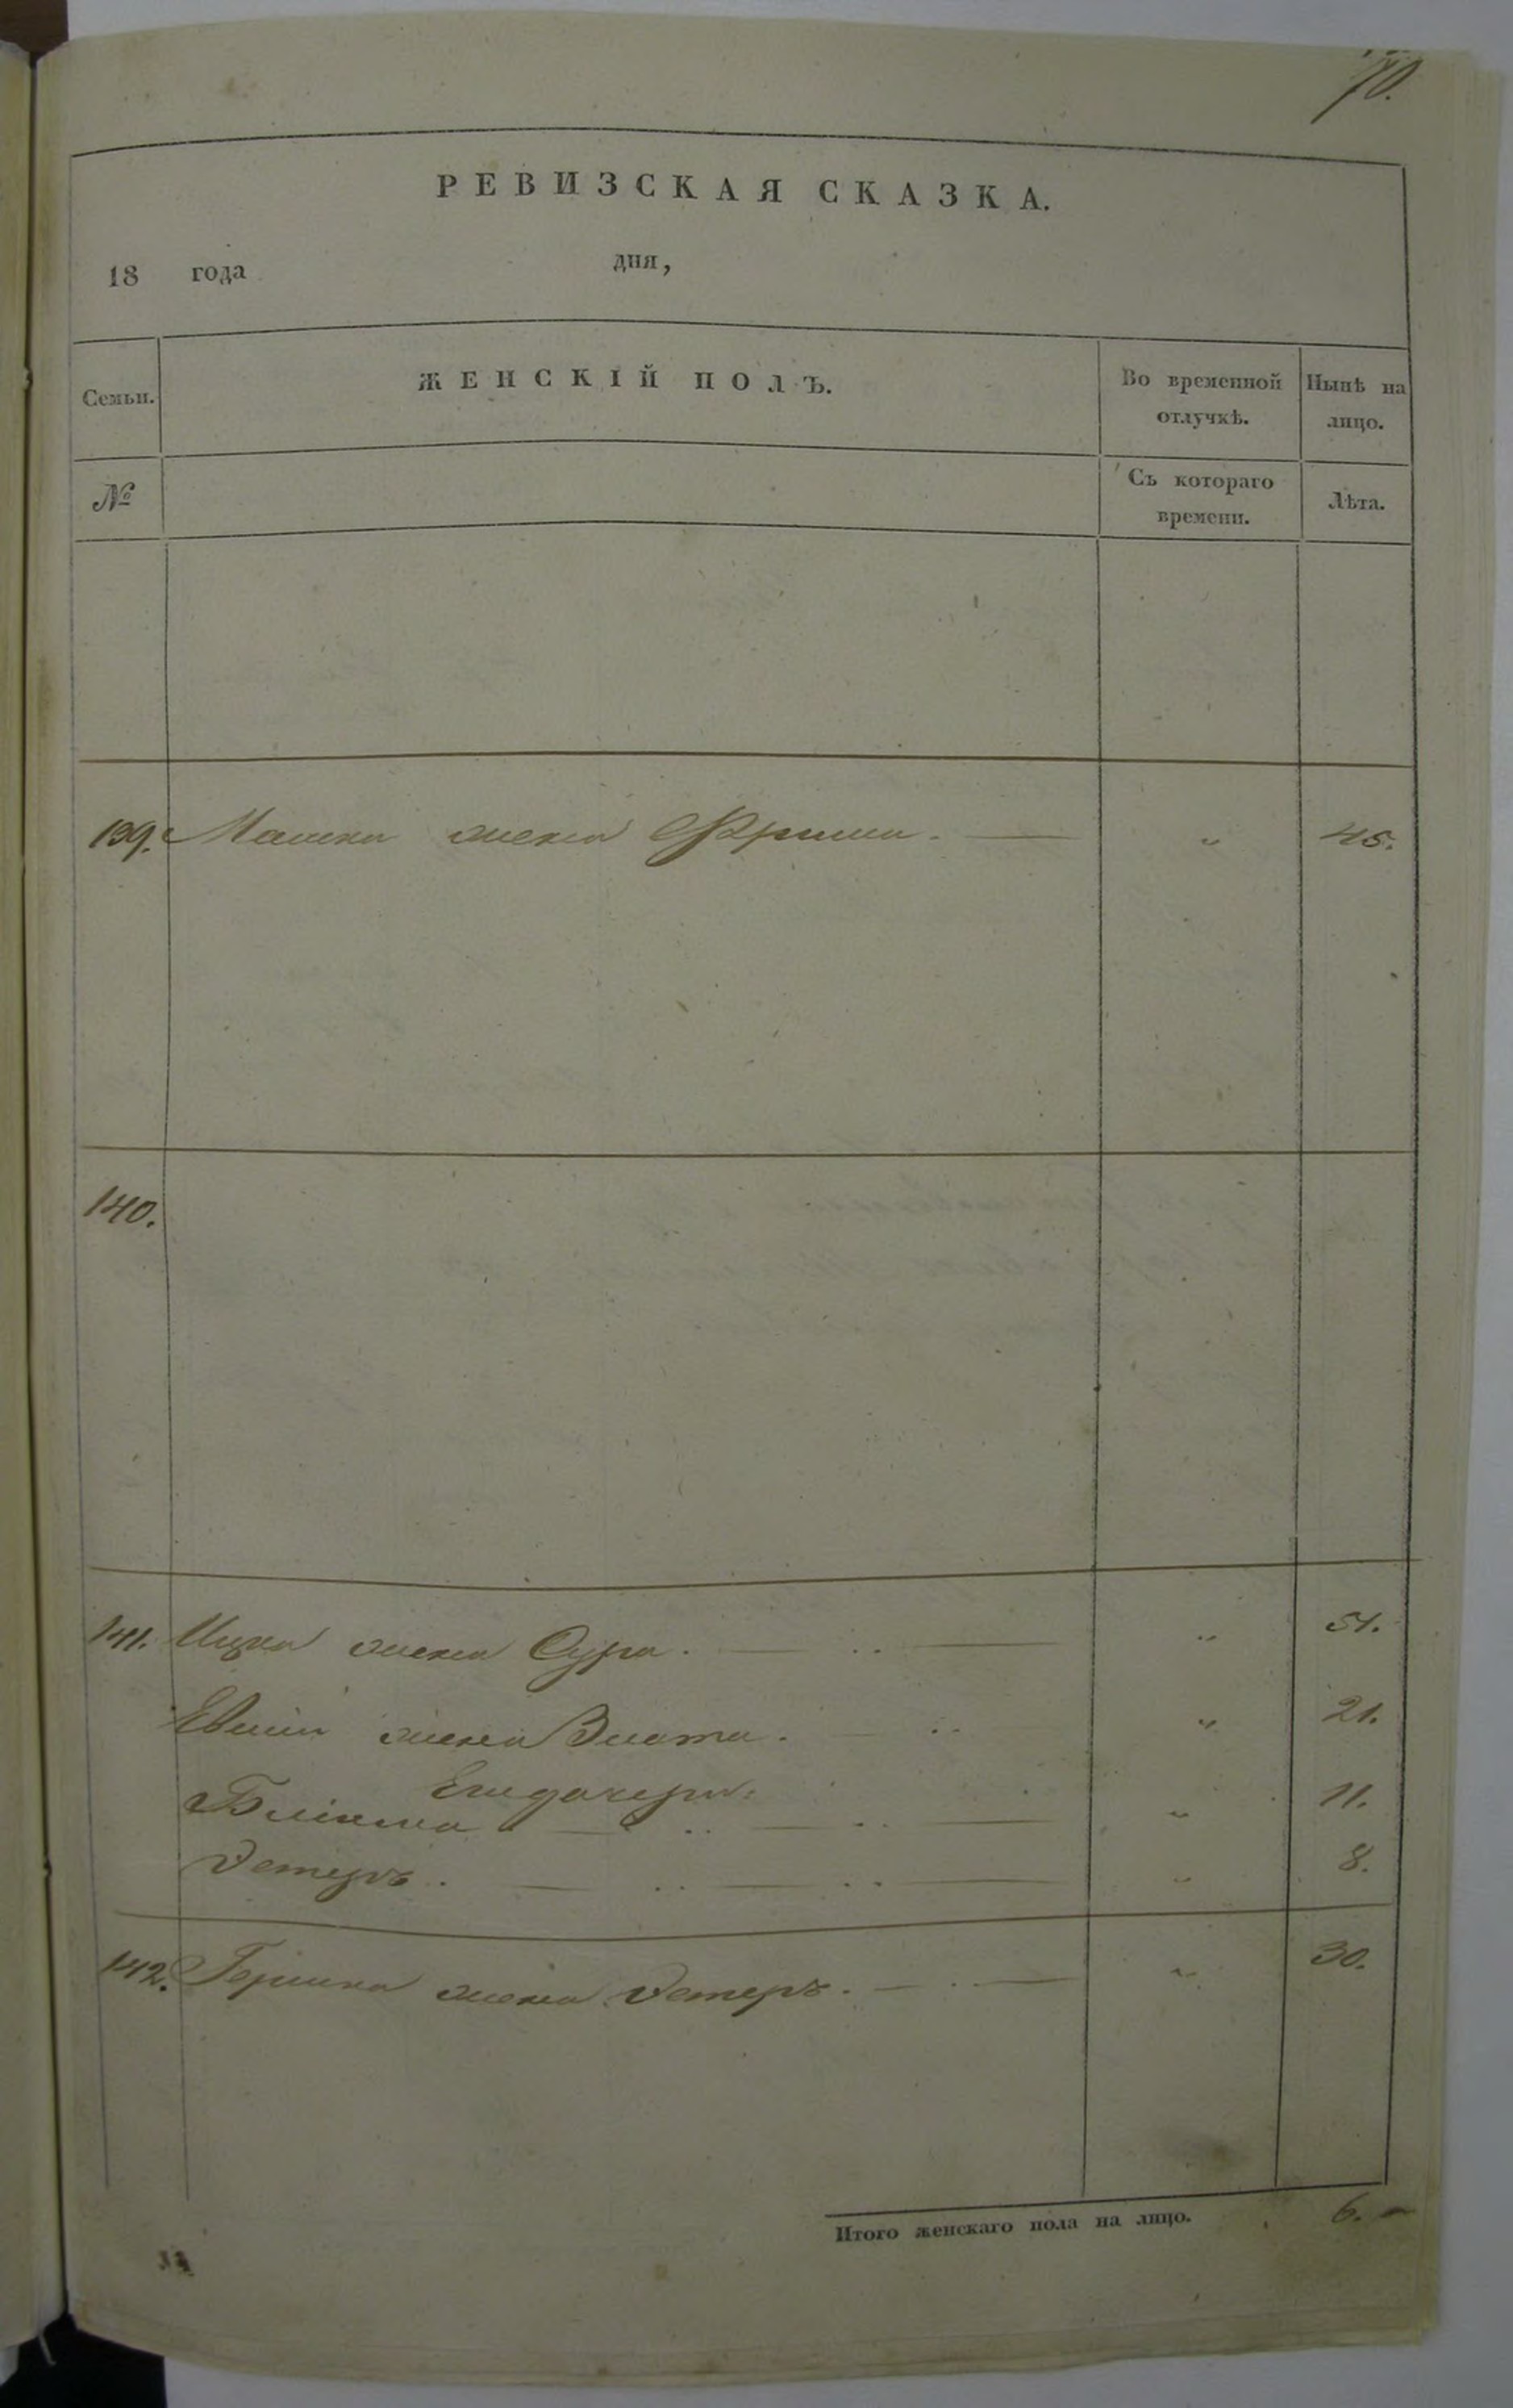 70.
РЕВИЗСКАЯ СКАЗКА.
18 года дня,
Семьи. ЖЕНСКІЙ ПОЛЪ. Во временной отлучкѣ. Нынѣ на лицо.
№ Съ котораго времени. Лѣта.
139. жена Фрима. — „ 45.
140.
141. Ицка жена Сура. — .. — „ 51.
жена Злота. — .. „ 21.
Его дочери:
Блюма — .. — .. — „ 11.
Этеръ. — .. — .. — „ 8.
142. Гершка жена Этеръ. — .. — „ 30.
Итого женскаго пола на лицо. 6. –